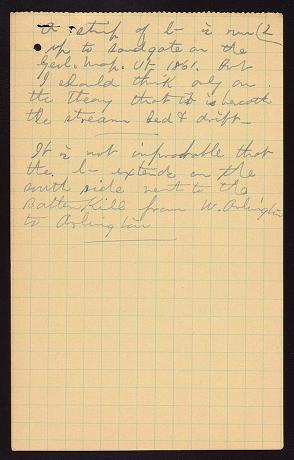 A strip of b is run (2
up to Sandgate on the
Geol. Map. Vt. 1861. But
I should think only on
the theory that it is beneath
the stream bed & drift.
It is not improbable that
the b extends on the
south side next to the
Batten Kill from W. Arlington
to Arlington